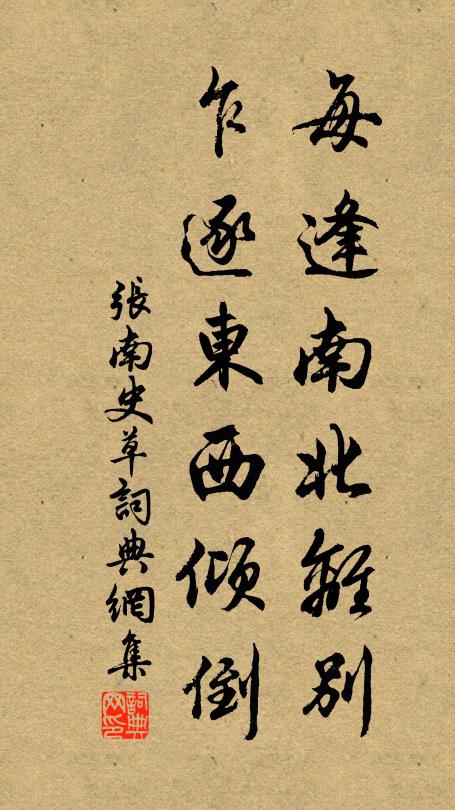 每逢南北離別
乍逐東西傾倒
張南史草詞典網集
詞典网印